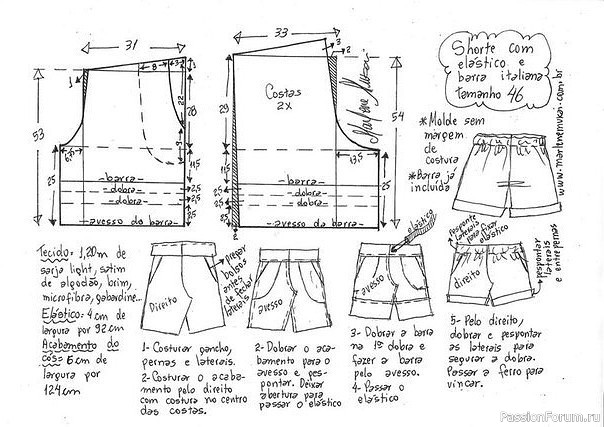 31
33
8
3
1
3
2
Shorte com
elástico e
barra italiana
tamanho 46
www.marlenemukai.com.br
Marlene Mukai
Costas
2X
53
28
22
28
29
54
*Molde sem
margem
de
costura
*Barra já
incluída
6,5
9
13,5
25
11,5
11,5
25
-barra-
-dobra-
-dobra-
-avesso da barra-
2,5
2,5
2,5
2,5
-barra-
-dobra-
-dobra-
-avesso da barra-
2
Tecido= 1,20m de
sarja light, satim
de algodão, brim,
microfibra, gabardine...
Elástico= 4cm de
largura por 92cm
Acabamento do
cós= 6cm de
largura por
124cm
Direito
Pregar
bolsos
antes
de fechar
laterais
avesso
elástico
avesso
Pesponte
laterais
para fixar
elástico
direito
pespontar
laterais
e entrepernas
1- Costurar gancho,
pernas e laterais.
2- Costurar o acaba-
mento pelo direito
com costura no centro
das costas.
2- Dobrar o aca-
bamento para o
avesso e pes-
pontar. Deixar
abertura para
passar o elástico
3- Dobrar a barra
na 1ª dobra e
fazer a barra
pelo avesso.
4- Passar o
elástico
5- Pelo direito,
dobrar e pespontar
as laterais para
segurar a dobra.
Passar a ferro para
vincar.
PassionForum.ru